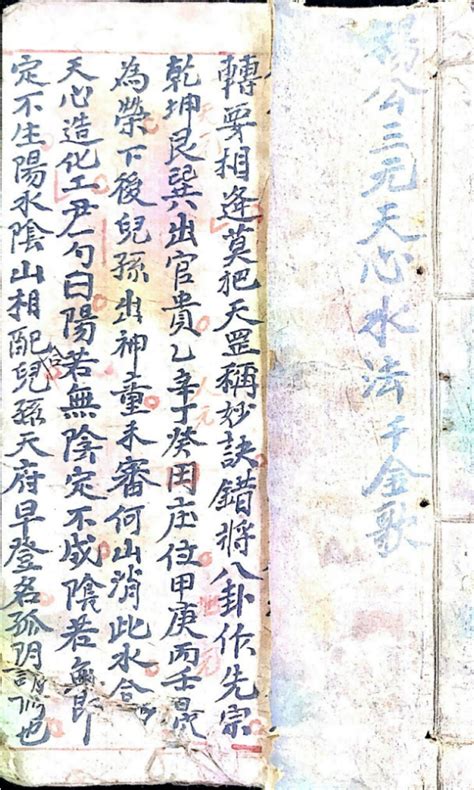 楊公三元天心水法千金歌
轉要相逢莫把天罡稱妙訣錯將八卦作先宗
乾坤艮巽出官貴乙辛丁癸田庄位甲庚丙壬是
為榮下後兒孫出神童未審何山消此水合
天心造化工君一勺曰陽若無陰定不成陰若無陽
定不生陽水陰山相配兒孫天府早登名孤陽